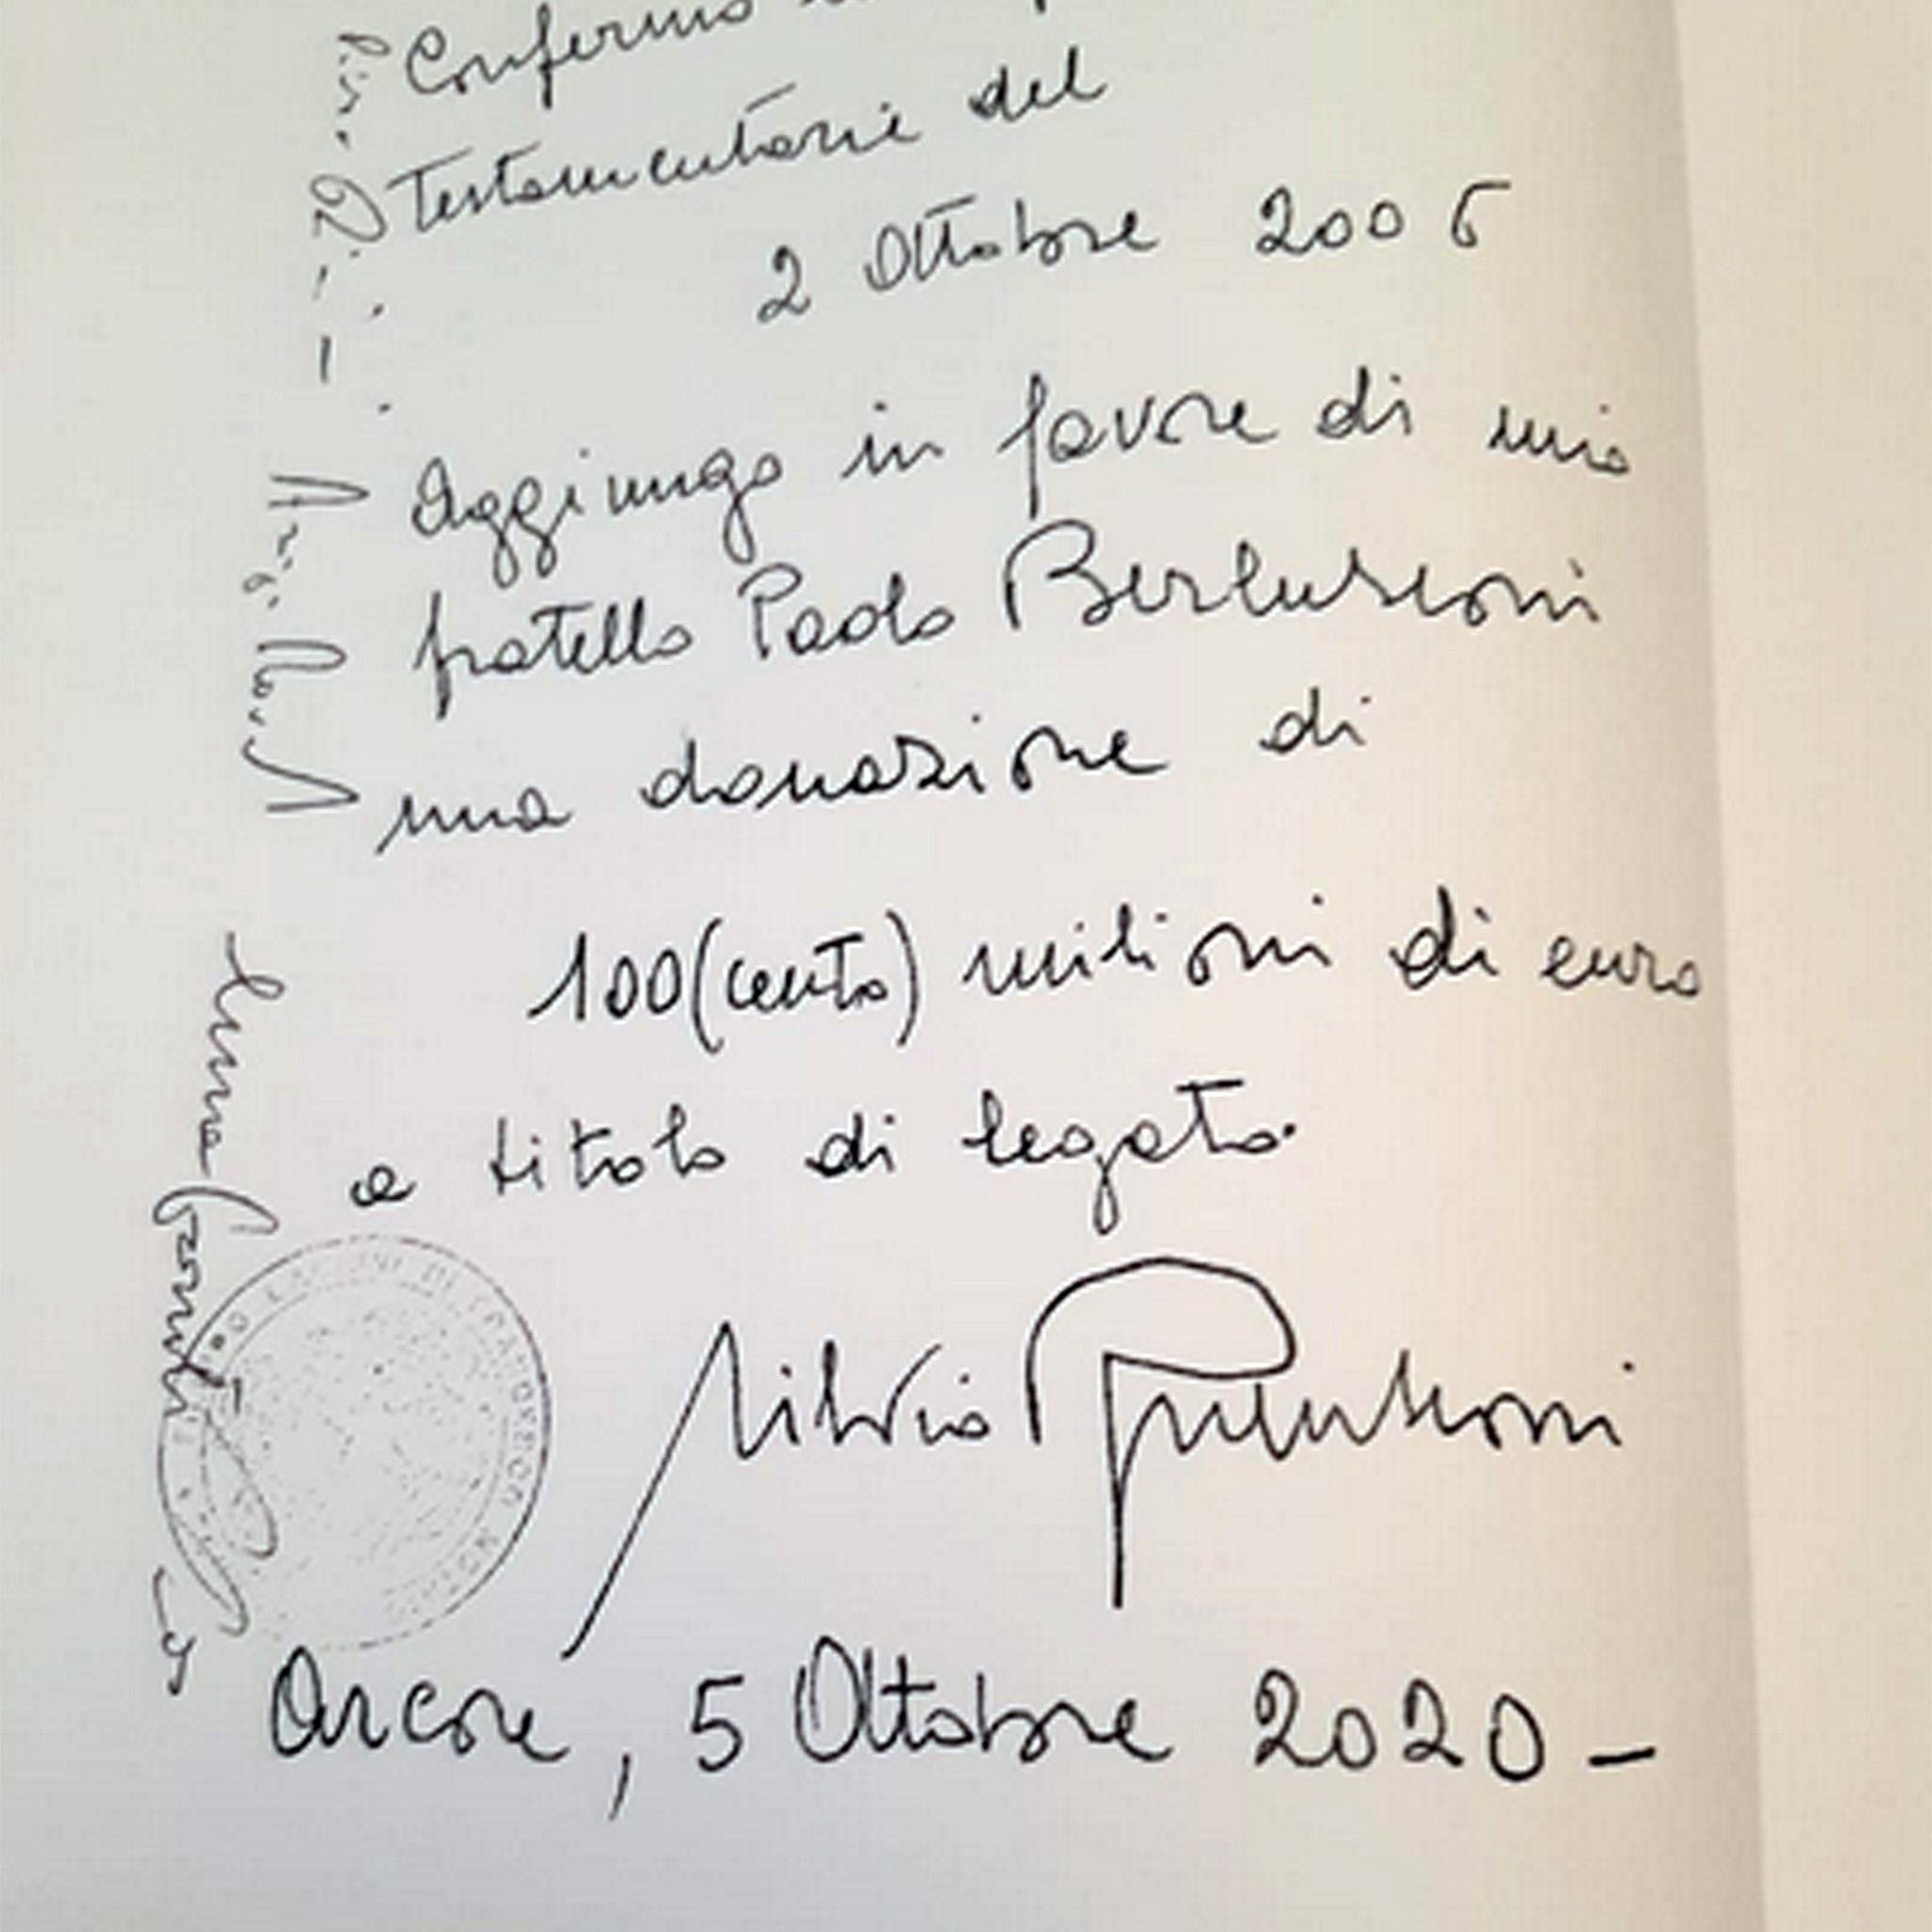 Confermo
Testamentarie del
2 Ottobre 2006
Aggiungo in favore di mio
fratello Paolo Berlusconi
una donazione di
100 (cento) milioni di euro
a titolo di legato.
Silvio Berlusconi
Arcore, 5 Ottobre 2020 –